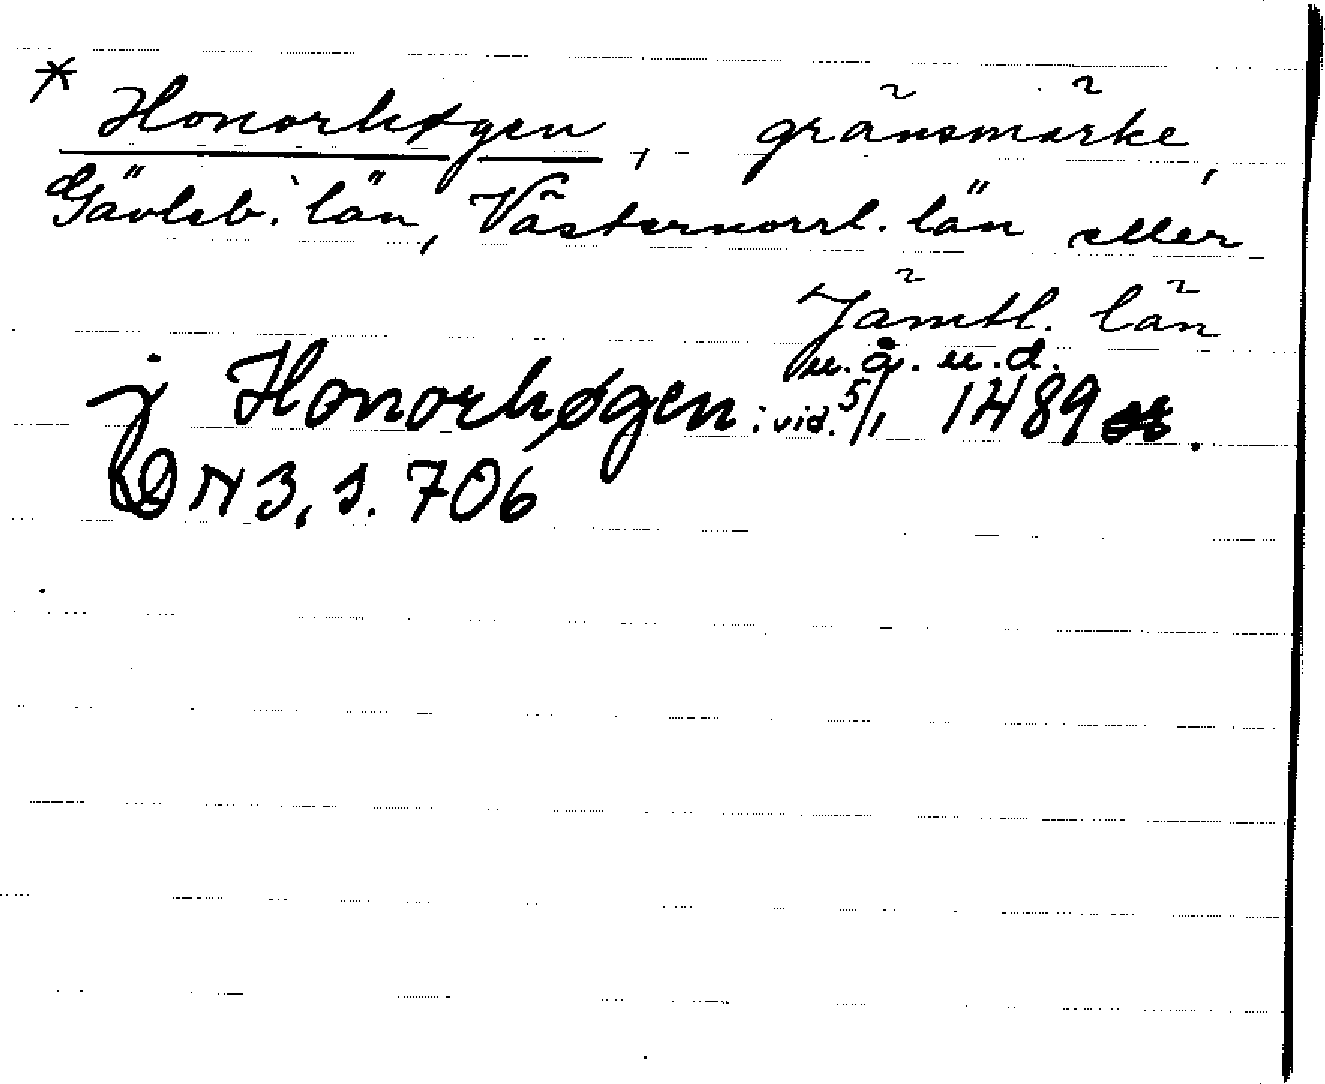 * Honorhøgen, gränsmärke,
Gävleb. län, Västernorrl. län eller
Jämtl. län
u.å.u.d.
j Honorhøgen: vid. 5/1 1489.
DN 3, s. 706